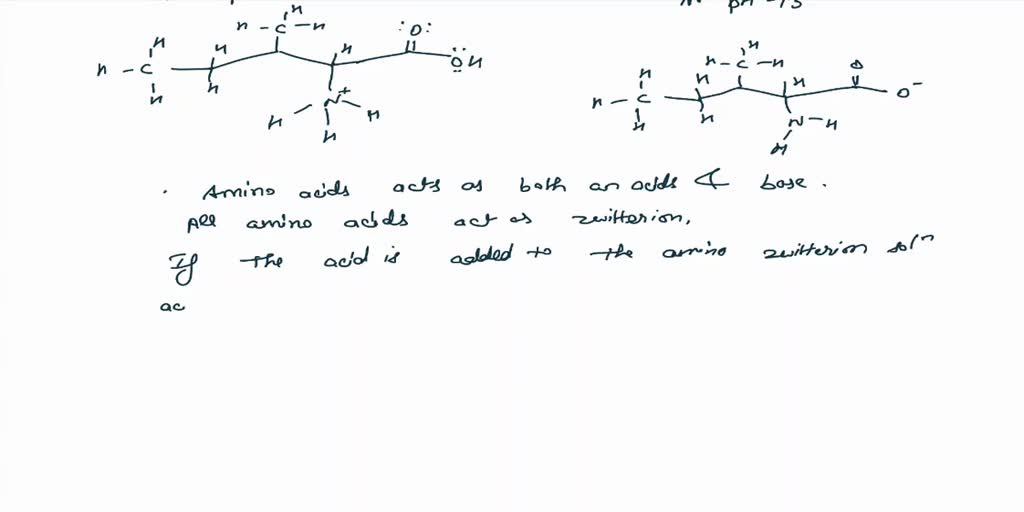 pH -13
H H
H - C - H :O: H
H H H H - C - H O
H - C ÖH H H H
H H N+ H - C O-
H H H H N - H
H H
. Amino acids acts as both an acids & base.
All amino acids act as zwitterion,
If the acid is added to the amino zwitterion soln
ac